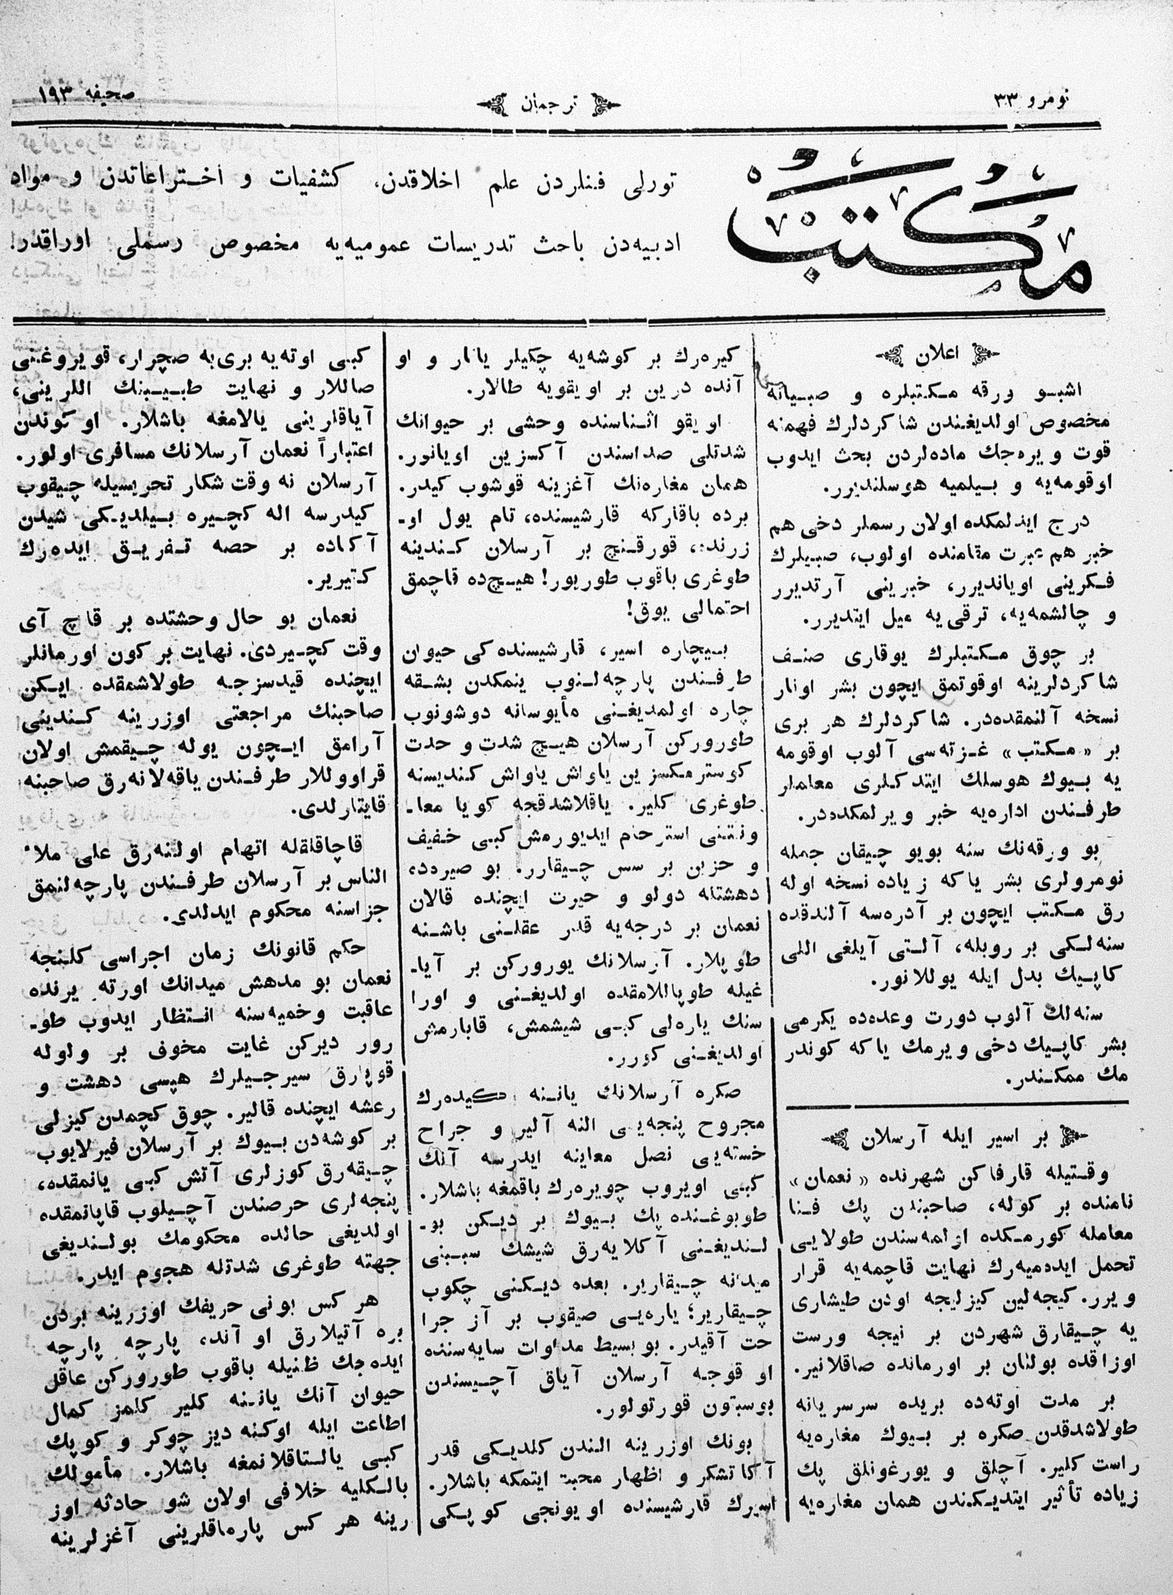 نومرو ٣٣
ترجمان
صحیفه ١٩٣
مكتب
تورلی فنلردن علم اخلاقدن، كشفیات و اختراعاتدن و مواد
ادبیه‌دن باحث تدریسات عمومیه‌یه مخصوص رسملی اوراقدر!
اعلان
اشبو ورقه مكتبلره و صبیانه
مخصوص اولدیغندن شاكردلرك فهمنه
قوت ویره‌جك ماده‌لردن بحث ایدوب
اوقومه‌یه و بیلمیه هوسلندیرر.
درج ایدلمكده اولان رسملر دخی هم
خبر هم عبرت مقامنده اولوب، صبیلرك
فكرینی اویاندیرر، خبرینی آرتدیرر
و چالشمه‌یه، ترقی یه میل ایتدیرر.
بر چوق مكتبلرك یوقاری صنف
شاكردلرینه اوقوتمق ایچون بشر اونار
نسخه آلنمقده‌در. شاكردلرك هر بری
بر «مكتب» غزته‌سی آلوب اوقومه
یه بیوك هوسلك ایتدكلری معلملر
طرفندن اداره‌یه خبر ویرلمكده‌در.
بو ورقه‌نك سنه بویو چیقان جمله
نومرولری بشر یاكه زیاده نسخه اوله
رق مكتب ایچون بر آدره‌سه آلندقده
سنه‌لكی بر روبله، آلتی آیلغی اللی
كاپیك بدل ایله یوللانور.
سنه‌لك آلوب دورت وعده‌ده یكرمی
بشر كاپیك دخی ویرمك یاكه كوندر
مك ممكندر.
بر اسیر ایله آرسلان
وقتیله قارفاكن شهرنده «نعمان»
نامنده بر كوله، صاحبندن پك فنا
معامله كورمكده اولمه‌سندن طولایی
تحمل ایده‌میه‌رك نهایت قاچمه‌یه قرار
ویرر. كیجه‌لین كیزلیجه اودن طیشاری
یه چیقارق شهردن بر نیجه ورست
اوزاقده بولنان بر اورمانده صاقلانیر.
بر مدت اوته‌ده بریده سرسریانه
طولاشدقدن صكره بر بیوك مغاره‌یه
راست كلیر. آچلق و یورغونلق پك
زیاده تأثیر ایتدیكندن همان مغاره‌یه
كیره‌رك بر كوشه‌یه چكیلر یاتار و او
آنده درین بر اویقویه طالار.
اویقو اثناسنده وحشی بر حیوانك
شدتلی صداسندن آكسزین اویانور.
همان مغاره‌نك آغزینه قوشوب كیدر.
برده باقاركه قارشیسنده، تام یول او-
زرنده، قورقنچ بر آرسلان كندینه
طوغری باقوب طوریور! هیچ‌ده قاچمق
احتمالی یوق!
بیچاره اسیر، قارشیسنده‌كی حیوان
طرفندن پارچه‌لنوب ینمكدن بشقه
چاره اولمدیغنی مأیوسانه دوشونوب
طورركن آرسلان هیچ شدت و حدت
كوسترمكسزین یاواش یاواش كندیسنه
طوغری كلیر. یاقلاشدقجه كویا معا-
ونتنی استرحام ایدیورمش كبی خفیف
و حزین بر سس چیقارر. بو صیره‌ده،
دهشتله دولو و حیرت ایچنده قالان
نعمان بر درجه‌یه قدر عقلنی باشنه
طوپلار. آرسلانك یوروركن بر آیا-
غیله طوپاللامقده اولدیغنی و اورا
سنك یاره‌لی كبی شیشمش، قابارمش
اولدیغنی كورر.
صكره آرسلانك یاننه كیده‌رك
مجروح پنجه‌یی النه آلیر و جراح
خسته‌یی نصل معاینه ایدرسه آنك
كبی اویروب چویره‌رك باقمغه باشلار.
طوپوغنده پك بیوك بر دیكن بو-
لندیغنی آكلایه‌رق شیشك سببنی
میدانه چیقاریر. بعده دیكنی چكوب
چیقاریر؛ یاره‌یی صیقوب بر آز جرا
حت آقیدر. بو بسیط مداوات سایه‌سنده
او قوجه آرسلان آیاق آچیسندن
بوسبتون قورتولور.
بونك اوزرینه الندن كلدیكی قدر
آكا تشكر و اظهار محبت ایتمكه باشلار.
اسیرك قارشیسنده اویونجی كوپكی
كبی اوته‌یه بری‌یه صچرار، قویروغنی
صاللار و نهایت طبیبنك اللرینی،
آیاقلرینی یالامغه باشلار. او كوندن
اعتباراً نعمان آرسلانك مسافری اولور.
آرسلان نه وقت شكار تحریسیله چیقوب
كیدرسه اله كچیره بیلدیكی شیدن
آكاده بر حصه تفریق ایده‌رك
كتیریر.
نعمان بو حال وحشتده بر قاچ آی
وقت كچیردی. نهایت بر كون اورمانلر
ایچنده قیدسزجه طولاشمقده ایكن
صاحبنك مراجعتی اوزرینه كندینی
آرامق ایچون یوله چیقمش اولان
قراووللار طرفندن یاقه‌لانه‌رق صاحبنه
قایتارلدی.
قاچاقلقله اتهام اولنه‌رق علی ملاء
الناس بر آرسلان طرفندن پارچه‌لنمق
جزاسنه محكوم ایدلدی.
حكم قانونك زمان اجراسی كلنجه
نعمان بو مدهش میدانك اورته یرنده
عاقبت وخمیه‌سنه انتظار ایدوب طو-
رور دیركن غایت مخوف بر ولوله
قوپارق سیرجیلرك هپسی دهشت و
رعشه ایچنده قالیر. چوق كچمدن كیزلی
بر كوشه‌دن بیوك بر آرسلان فیرلایوب
چیقه‌رق كوزلری آتش كبی یانمقده،
پنجه‌لری حرصندن آچیلوب قاپانمقده
اولدیغی حالده محكومك بولندیغی
جهته طوغری شدتله هجوم ایدر.
هر كس بونی حریفك اوزرینه بردن
بره آتیلارق او آنده، پارچه پارچه
ایده‌جك ظنیله باقوب طورركن عاقل
حیوان آنك یاننه كلیر كلمز كمال
اطاعت ایله اوكنه دیز چوكر و كوپك
كبی یالتاقلانمغه باشلار. مأمولك
بالكلیه خلافی اولان شو حادثه اوز
رینه هر كس پارماقلرینی آغزلرینه